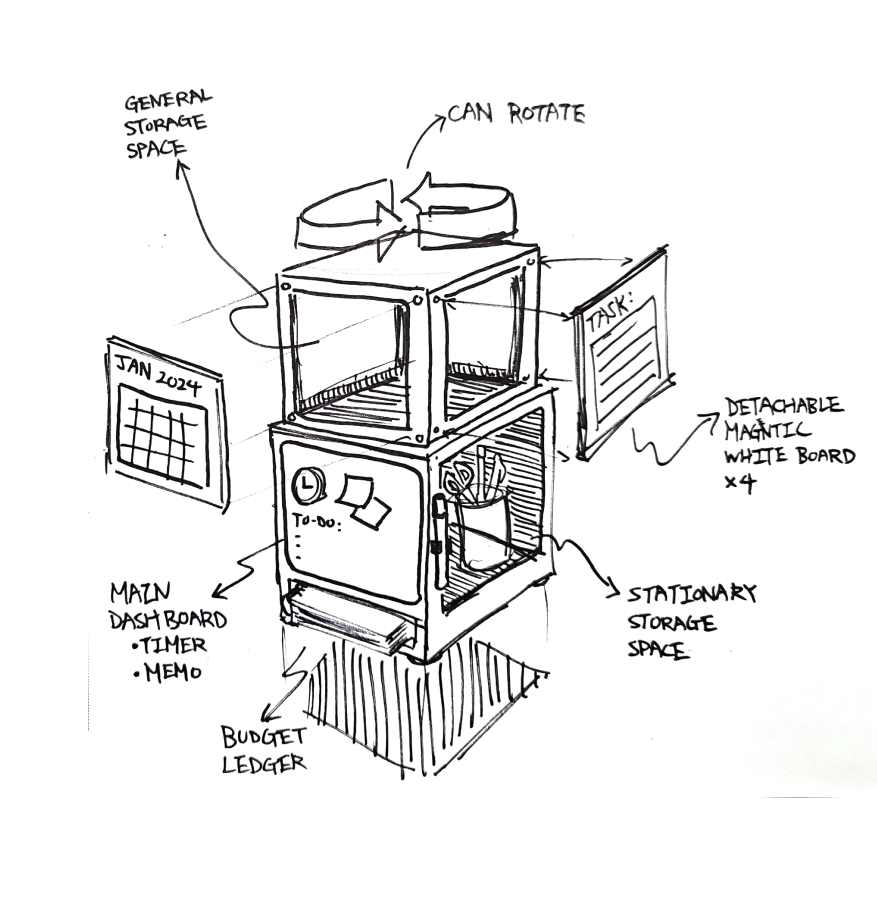 GENERAL
STORAGE
SPACE
CAN ROTATE
JAN 2024
TASK:
DETACHABLE
MAGNTIC
WHITE BOARD
x4
TO-DO:
MAIN
DASHBOARD
• TIMER
• MEMO
STATIONARY
STORAGE
SPACE
BUDGET
LEDGER